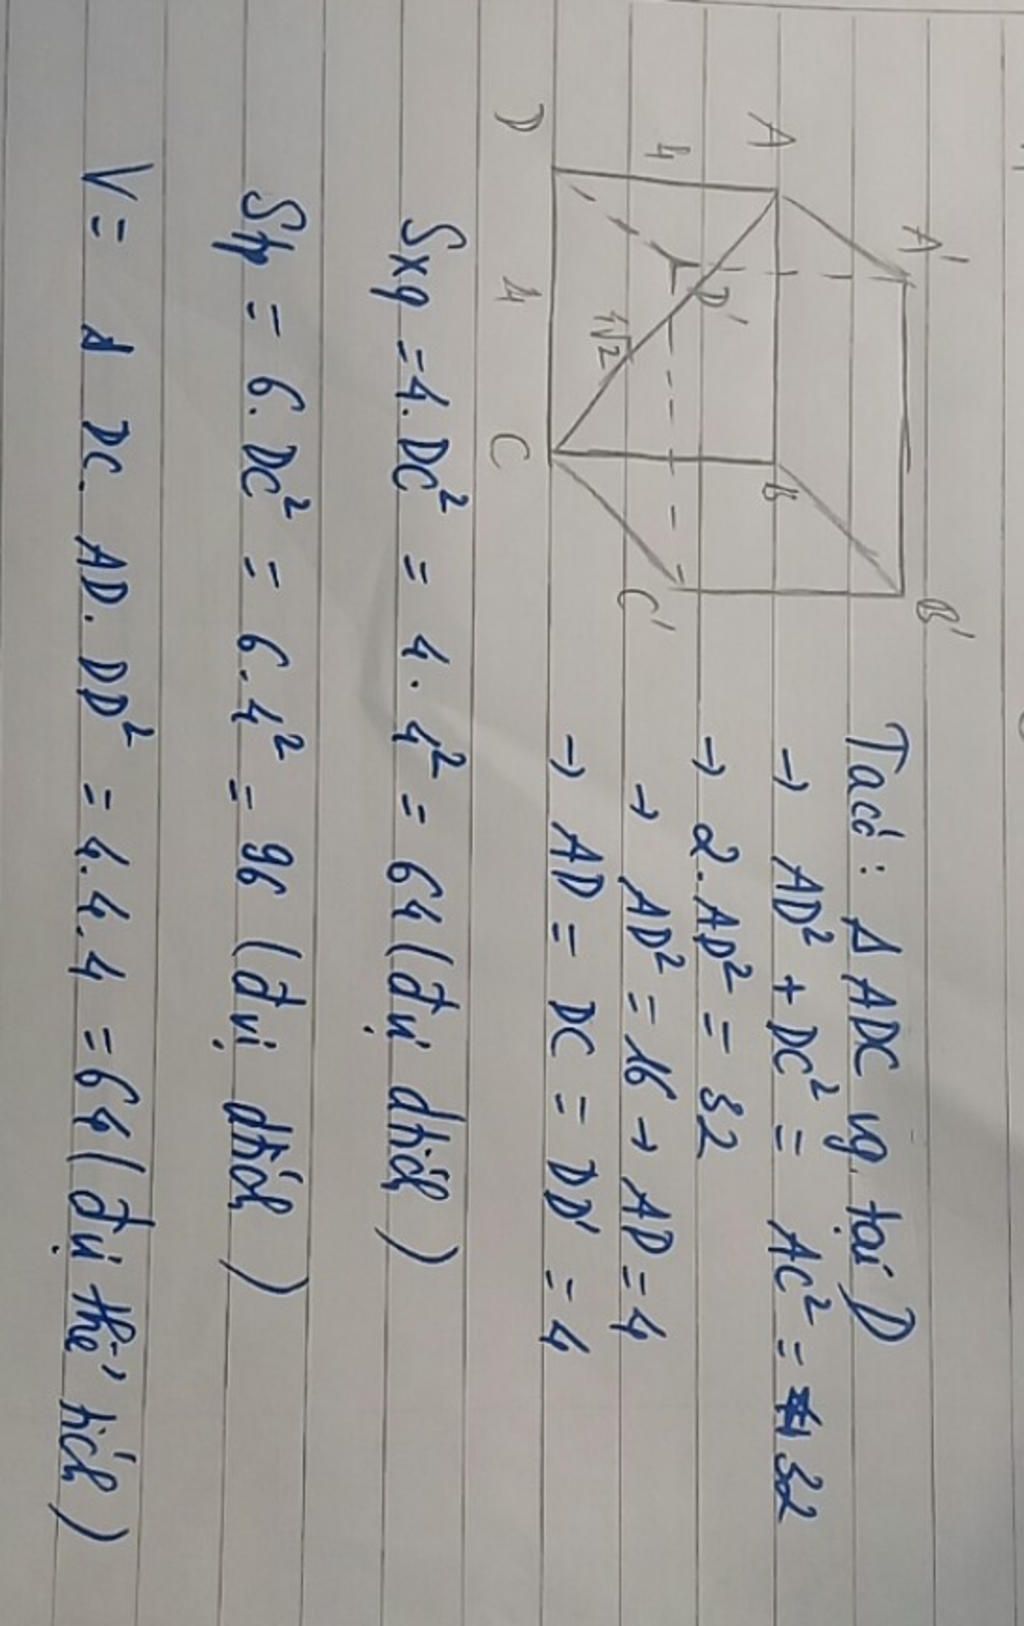 A'
B'
A
B
4
D'
C'
4√2
D
4
C
Ta có: Δ ADC vg tại D
→ AD² + DC² = AC² = 32
→ 2.AD² = 32
→ AD² = 16 → AD = 4
→ AD = DC = DD' = 4
Sxq = 4.DC² = 4.4² = 64 (đvị dtích)
Stp = 6.DC² = 6.4² = 96 (đvị dtích)
V = DC.AD.DD² = 4.4.4 = 64 (đvị thể tích)